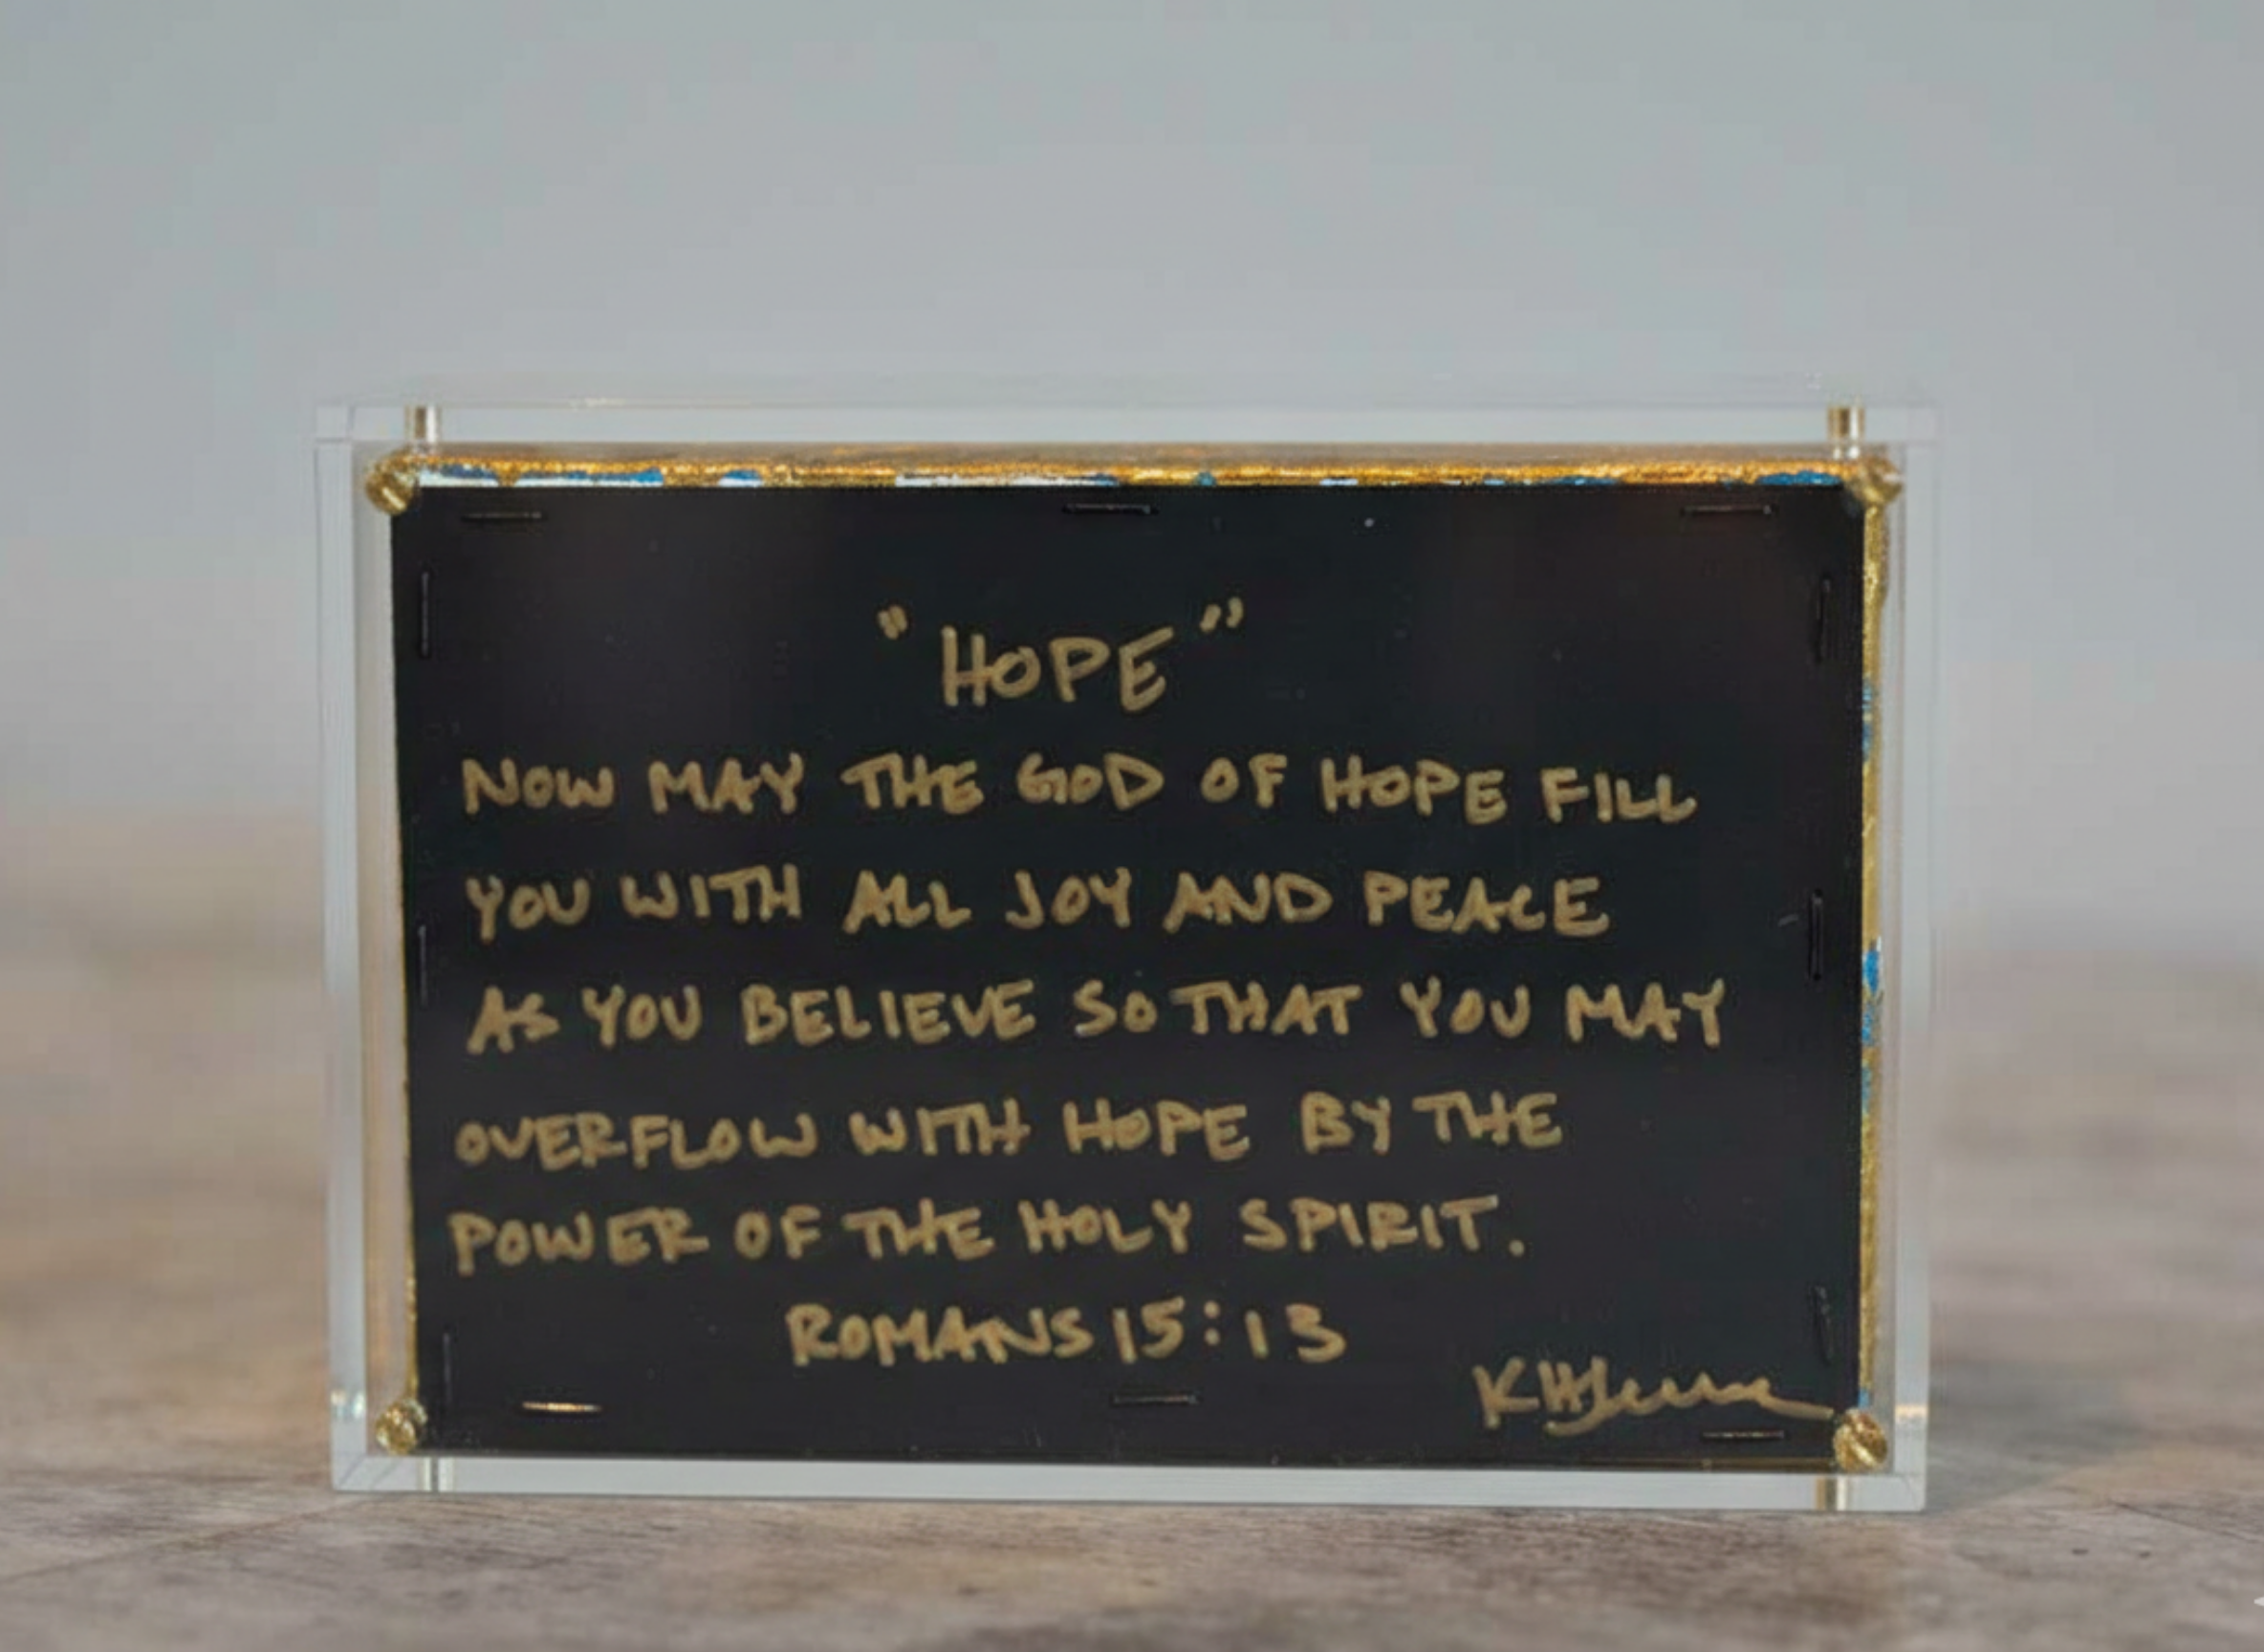 "HOPE"
NOW MAY THE GOD OF HOPE FILL
YOU WITH ALL JOY AND PEACE
AS YOU BELIEVE SO THAT YOU MAY
OVERFLOW WITH HOPE BY THE
POWER OF THE HOLY SPIRIT.
ROMANS 15:13